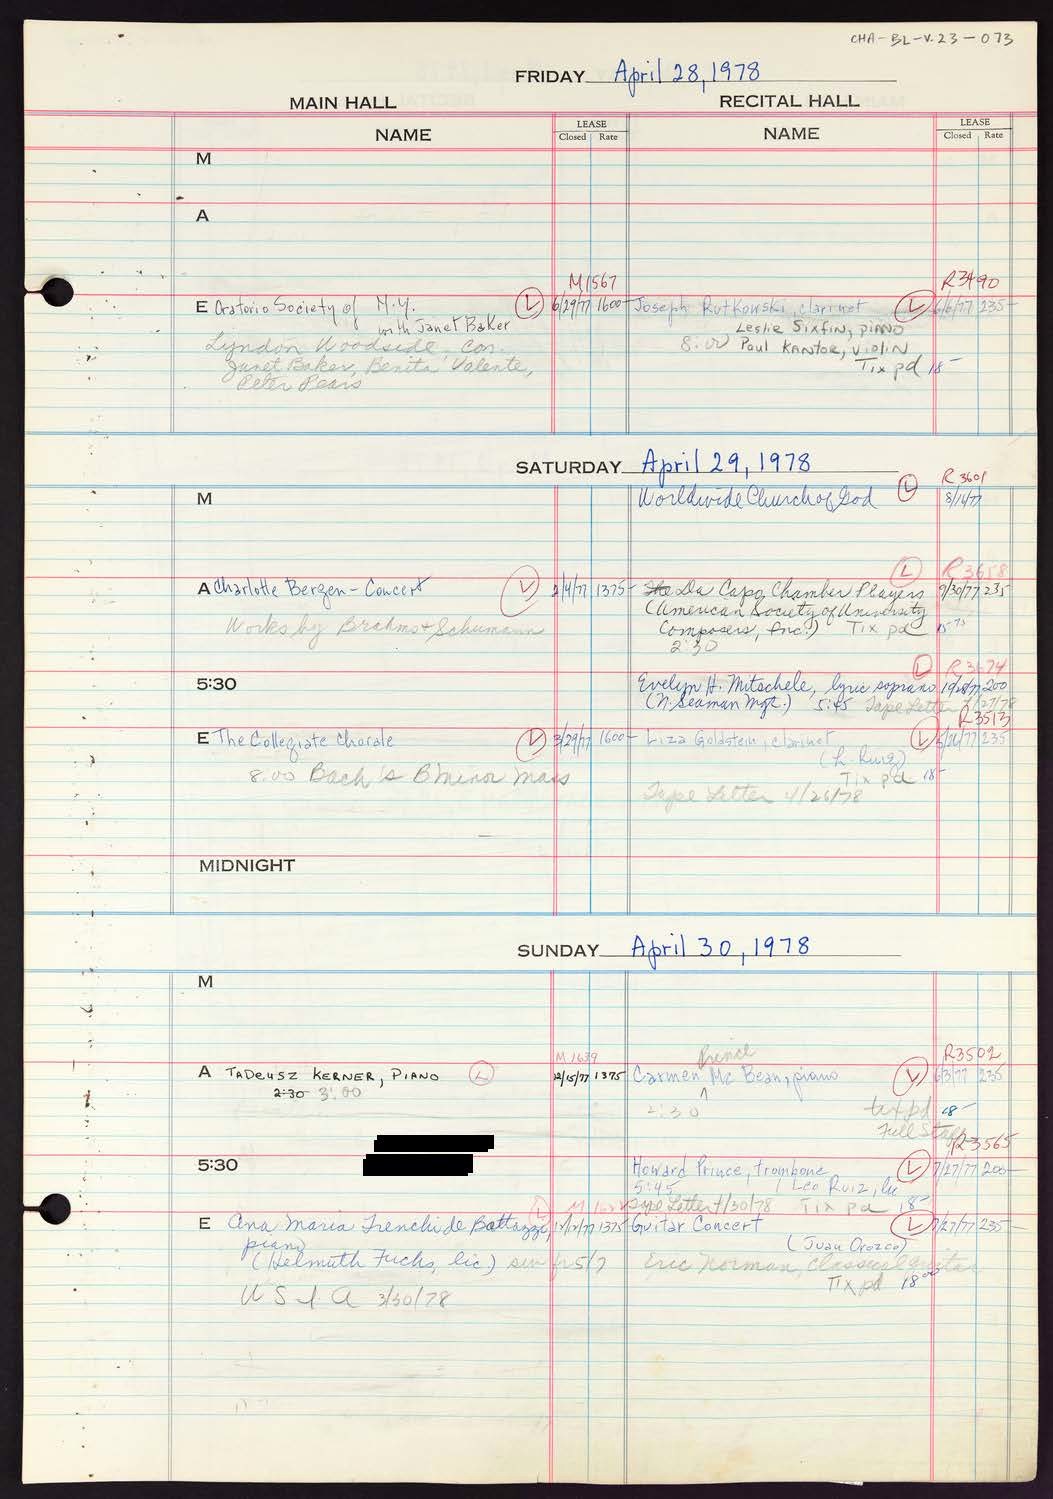 CHA-BL-V.23-073
FRIDAY April 28, 1978
MAIN HALL
RECITAL HALL
NAME
LEASE
Closed Rate
NAME
LEASE
Closed Rate
M
A
M1567
R3490
E Oratorio Society of N.Y. L 6/29/77 1600-
with Janet Baker
Lyndon Woodside, Con.
Janet Baker, Benita Valente,
Peter Pears
Joseph Rutkowski, clarinet L 6/6/77 235-
Leslie Sixfin, PIANO
8:00 Paul KANTOR, VIOLIN
Tix pd 18-
SATURDAY April 29, 1978
R3601
M
Worldwide Church of God L 8/16/77
A Charlotte Bergen - Concert L 2/4/77 1375-
Works by Brahms + Schumann
L R3658
The Da Capo Chamber Players 9/30/77 235
(American Society of University
Composers, Inc.) Tix pd 15 75
2:30
5:30
L R3674
Evelyn H. Mitschele, lyric soprano 10/28/77 200
(N. Seaman Mgt.) 5:45 Tape Letter 4/27/78
R3513
E The Collegiate Chorale L 3/29/77 1600-
8:00 Bach's B minor Mass
Liza Goldstein, clarinet L 235
Tix pd 18-
Tape Letter 4/26/78
MIDNIGHT
SUNDAY April 30, 1978
M
M 1639
Prince
R3502
A TADEUSZ KERNER, PIANO L 12/15/77 1375
2:30 3:00
Carmen Mc Bean, piano L 6/3/77 235
2:30 tix pd 18-
Full Staff
R3565
5:30
Howard Prince, trombone L 7/27/77 200-
5:45 Leo Ruiz, lic
Tape Letter 4/30/78 Tix pd 18-
L
E Ana Maria Trenchi de Bottazzi, 1375
piano
(Helmuth Fuchs, lic.) 5/7
3/30/78
Guitar Concert L 7/27/77 235-
(Juan Orozco)
Eric Norman, Classical guitar
Tix pd 18 00